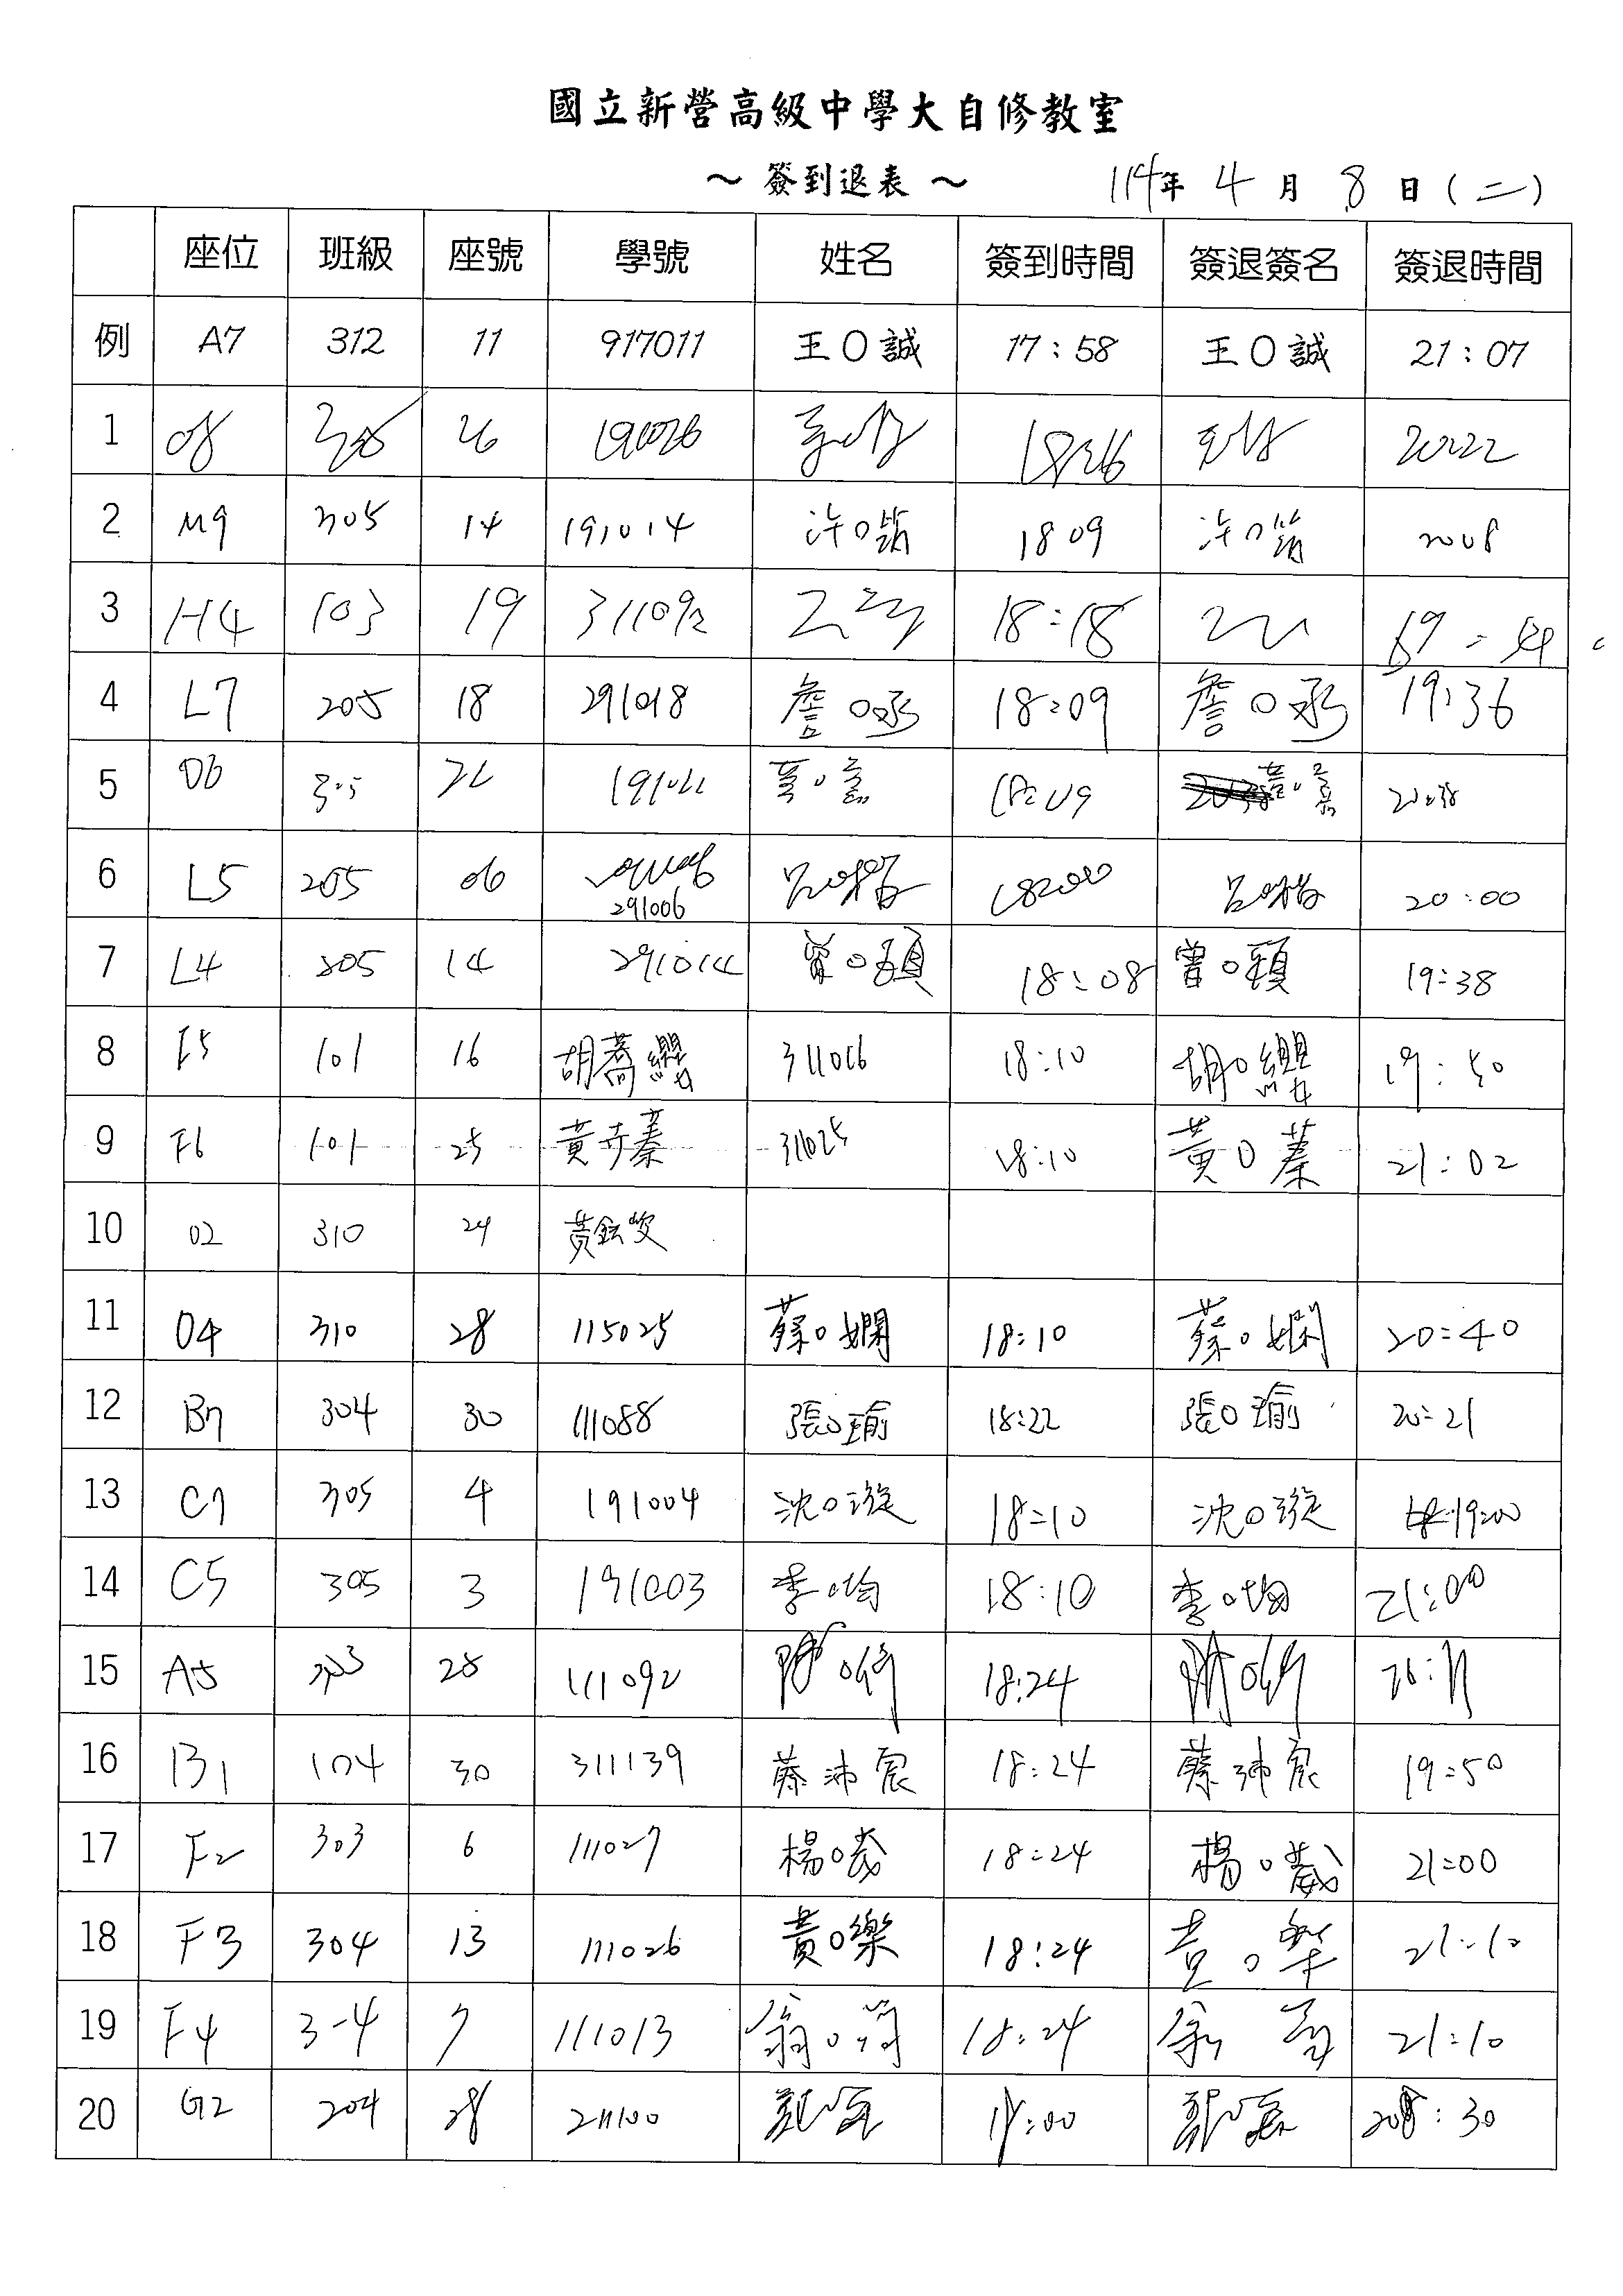 國立新營高級中學大自修教室
～ 簽到退表 ～ 114年 4 月 8 日 (二)
座位 班級 座號 學號 姓名 簽到時間 簽退簽名 簽退時間
例 A7 312 11 917011 王〇誠 17:58 王〇誠 21:07
1 08 305 26 191026 1826 2022
2 M9 305 14 191014 許〇 1809 許〇 2008
3 H4 103 19 311092 18:18
4 L7 205 18 291018 詹〇承 18:09 詹〇承 19:36
5 06 305 22 2038
6 L5 205 06 291006 呂〇 呂〇 20:00
7 L4 205 14 291014 曾〇穎 18:08 曾〇穎 19:38
8 E5 101 16 胡蕎纓 311016 18:10 胡〇纓 19:50
9 F6 101 25 黃卉蓁 311025 18:10 黃〇蓁 21:02
10 02 310 24 黃鈜
11 04 310 28 115025 蔡〇嫻 18:10 蔡〇嫻 20:40
12 B7 304 30 111088 張〇瑜 18:22 張〇瑜 20:21
13 C7 305 4 191004 沈〇漩 18:10 沈〇漩 19:00
14 C5 305 3 191003 李〇均 18:10 李〇均 21:00
15 A5 303 28 111092 陳〇 18:24 陳〇
16 B1 104 30 311139 蔡沛宸 18:24 蔡沛宸 19:50
17 F2 303 6 111027 楊〇葳 18:24 楊〇葳 21:00
18 F3 304 13 111026 黃〇樂 18:24 黃〇 21:10
19 F4 3-4 7 111013 翁〇筠 18:24 翁 21:10
20 G2 204 28 211100 :00 :30